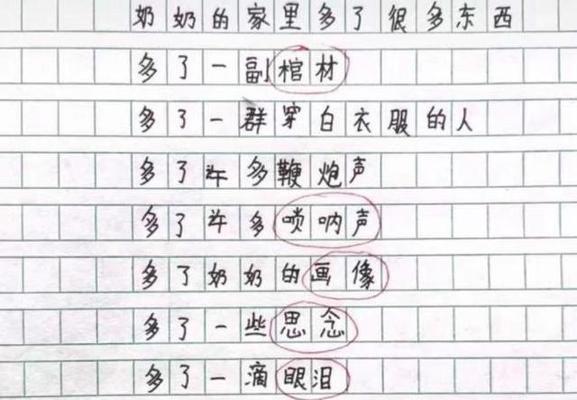 奶奶的家里多了很多东西
多了一副棺材
多了一群穿白衣服的人
多了许多鞭炮声
多了许多唢呐声
多了奶奶的画像
多了一些思念
多了一滴眼泪